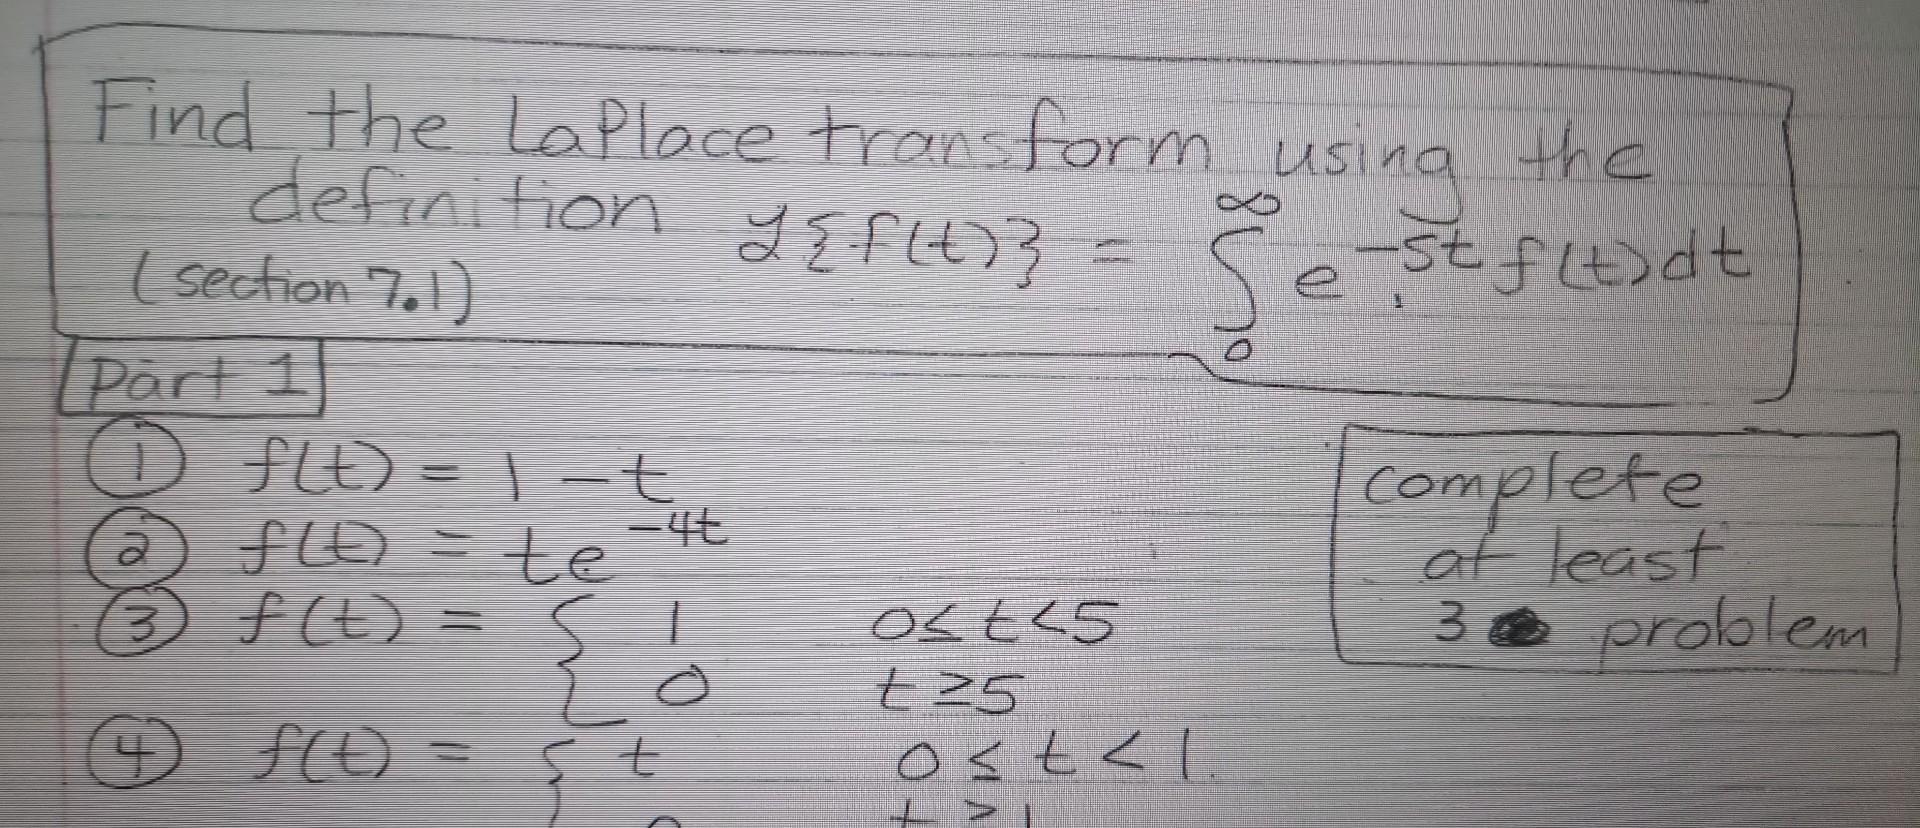 Find the LaPlace transform using the
definition ℒ{f(t)} = ∫₀^∞ e^-st f(t)dt
(section 7.1)
Part 1
① f(t) = 1 - t
② f(t) = te^-4t
③ f(t) = { 1 0≤t<5
0 t≥5
④ f(t) = { t 0≤t<1
complete
at least
3 problem